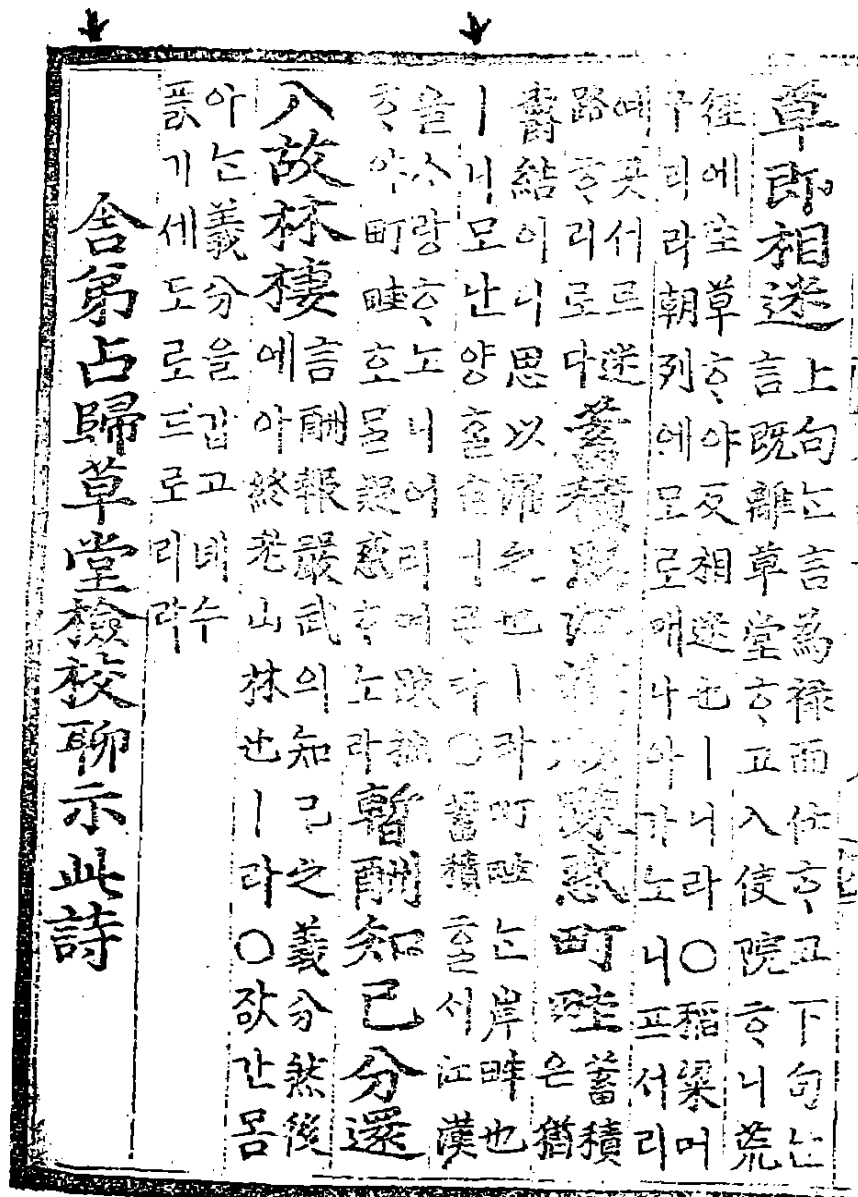 草即相迷 上句는言爲祿而仕ᄒᆞ고下句는
言旣離草堂ᄒᆞ고入使院ᄒᆞ니荒
徑에生草ᄒᆞ야反相迷也ㅣ니라○稻粱머
구리라朝列에모로매나아가노니프서리
예곳서르迷
路ᄒᆞ리로다 蓄積思江漢疎頑惑町畦 蓄積
은猶
鬱結이니思以濯之也ㅣ라町畦는岸畔也
ㅣ니모난양ᄒᆞᆯ 니르 ○蓄積ᄒᆞᆯ서江漢
을ᄉᆞ랑ᄒᆞ노니어리며踈拙
ᄒᆞ야町畦호ᄆᆞᆯ疑惑ᄒᆞ노라 暫酬知己分還
入故林棲 言酬報嚴武의知己之義分然後
에아終老山林也ㅣ라○잢간몸
아논義分을갑고녜수
픐기세도로드로리라
舍弟占歸草堂檢校聊示此詩